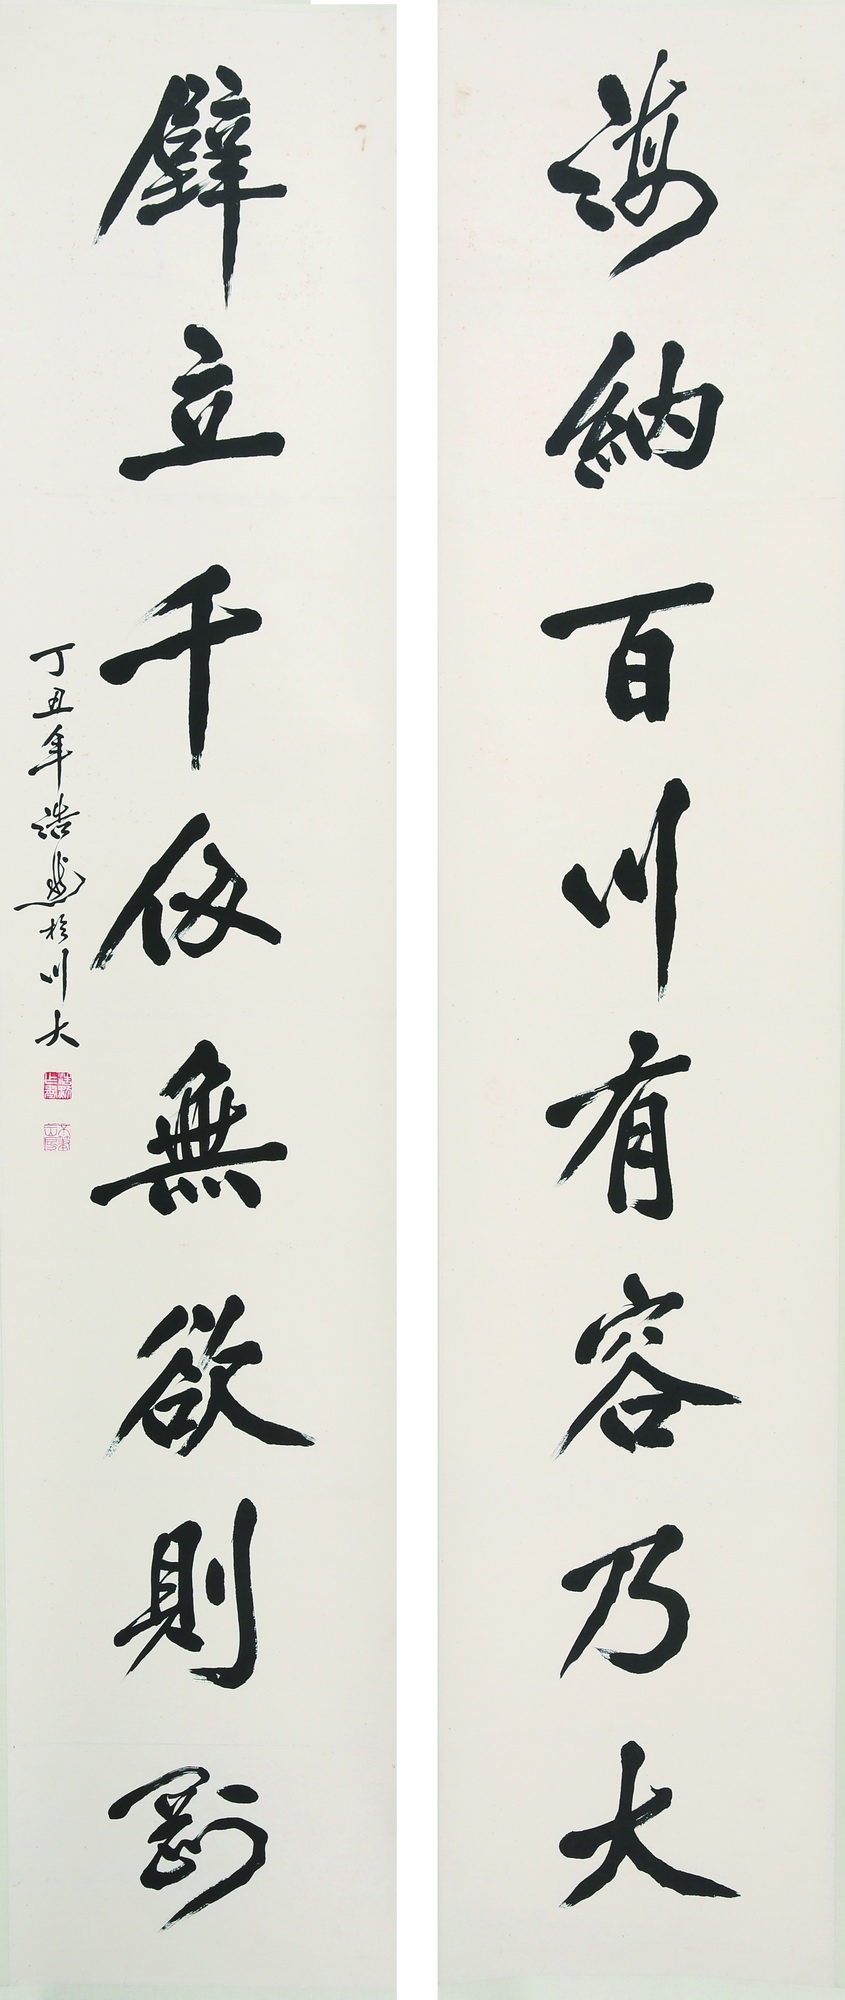 海納百川有容乃大
壁立千仞無欲則剛
丁丑年浩然於川大